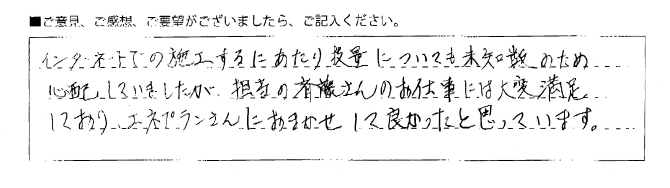 ■ご意見、ご感想、ご要望がございましたら、ご記入ください。
インターネットでの施工するにあたり技量についても未知数のため
心配していましたが、担当の斉藤さんのお仕事には大変満足
しており、エネプランさんにおまかせして良かったと思っています。